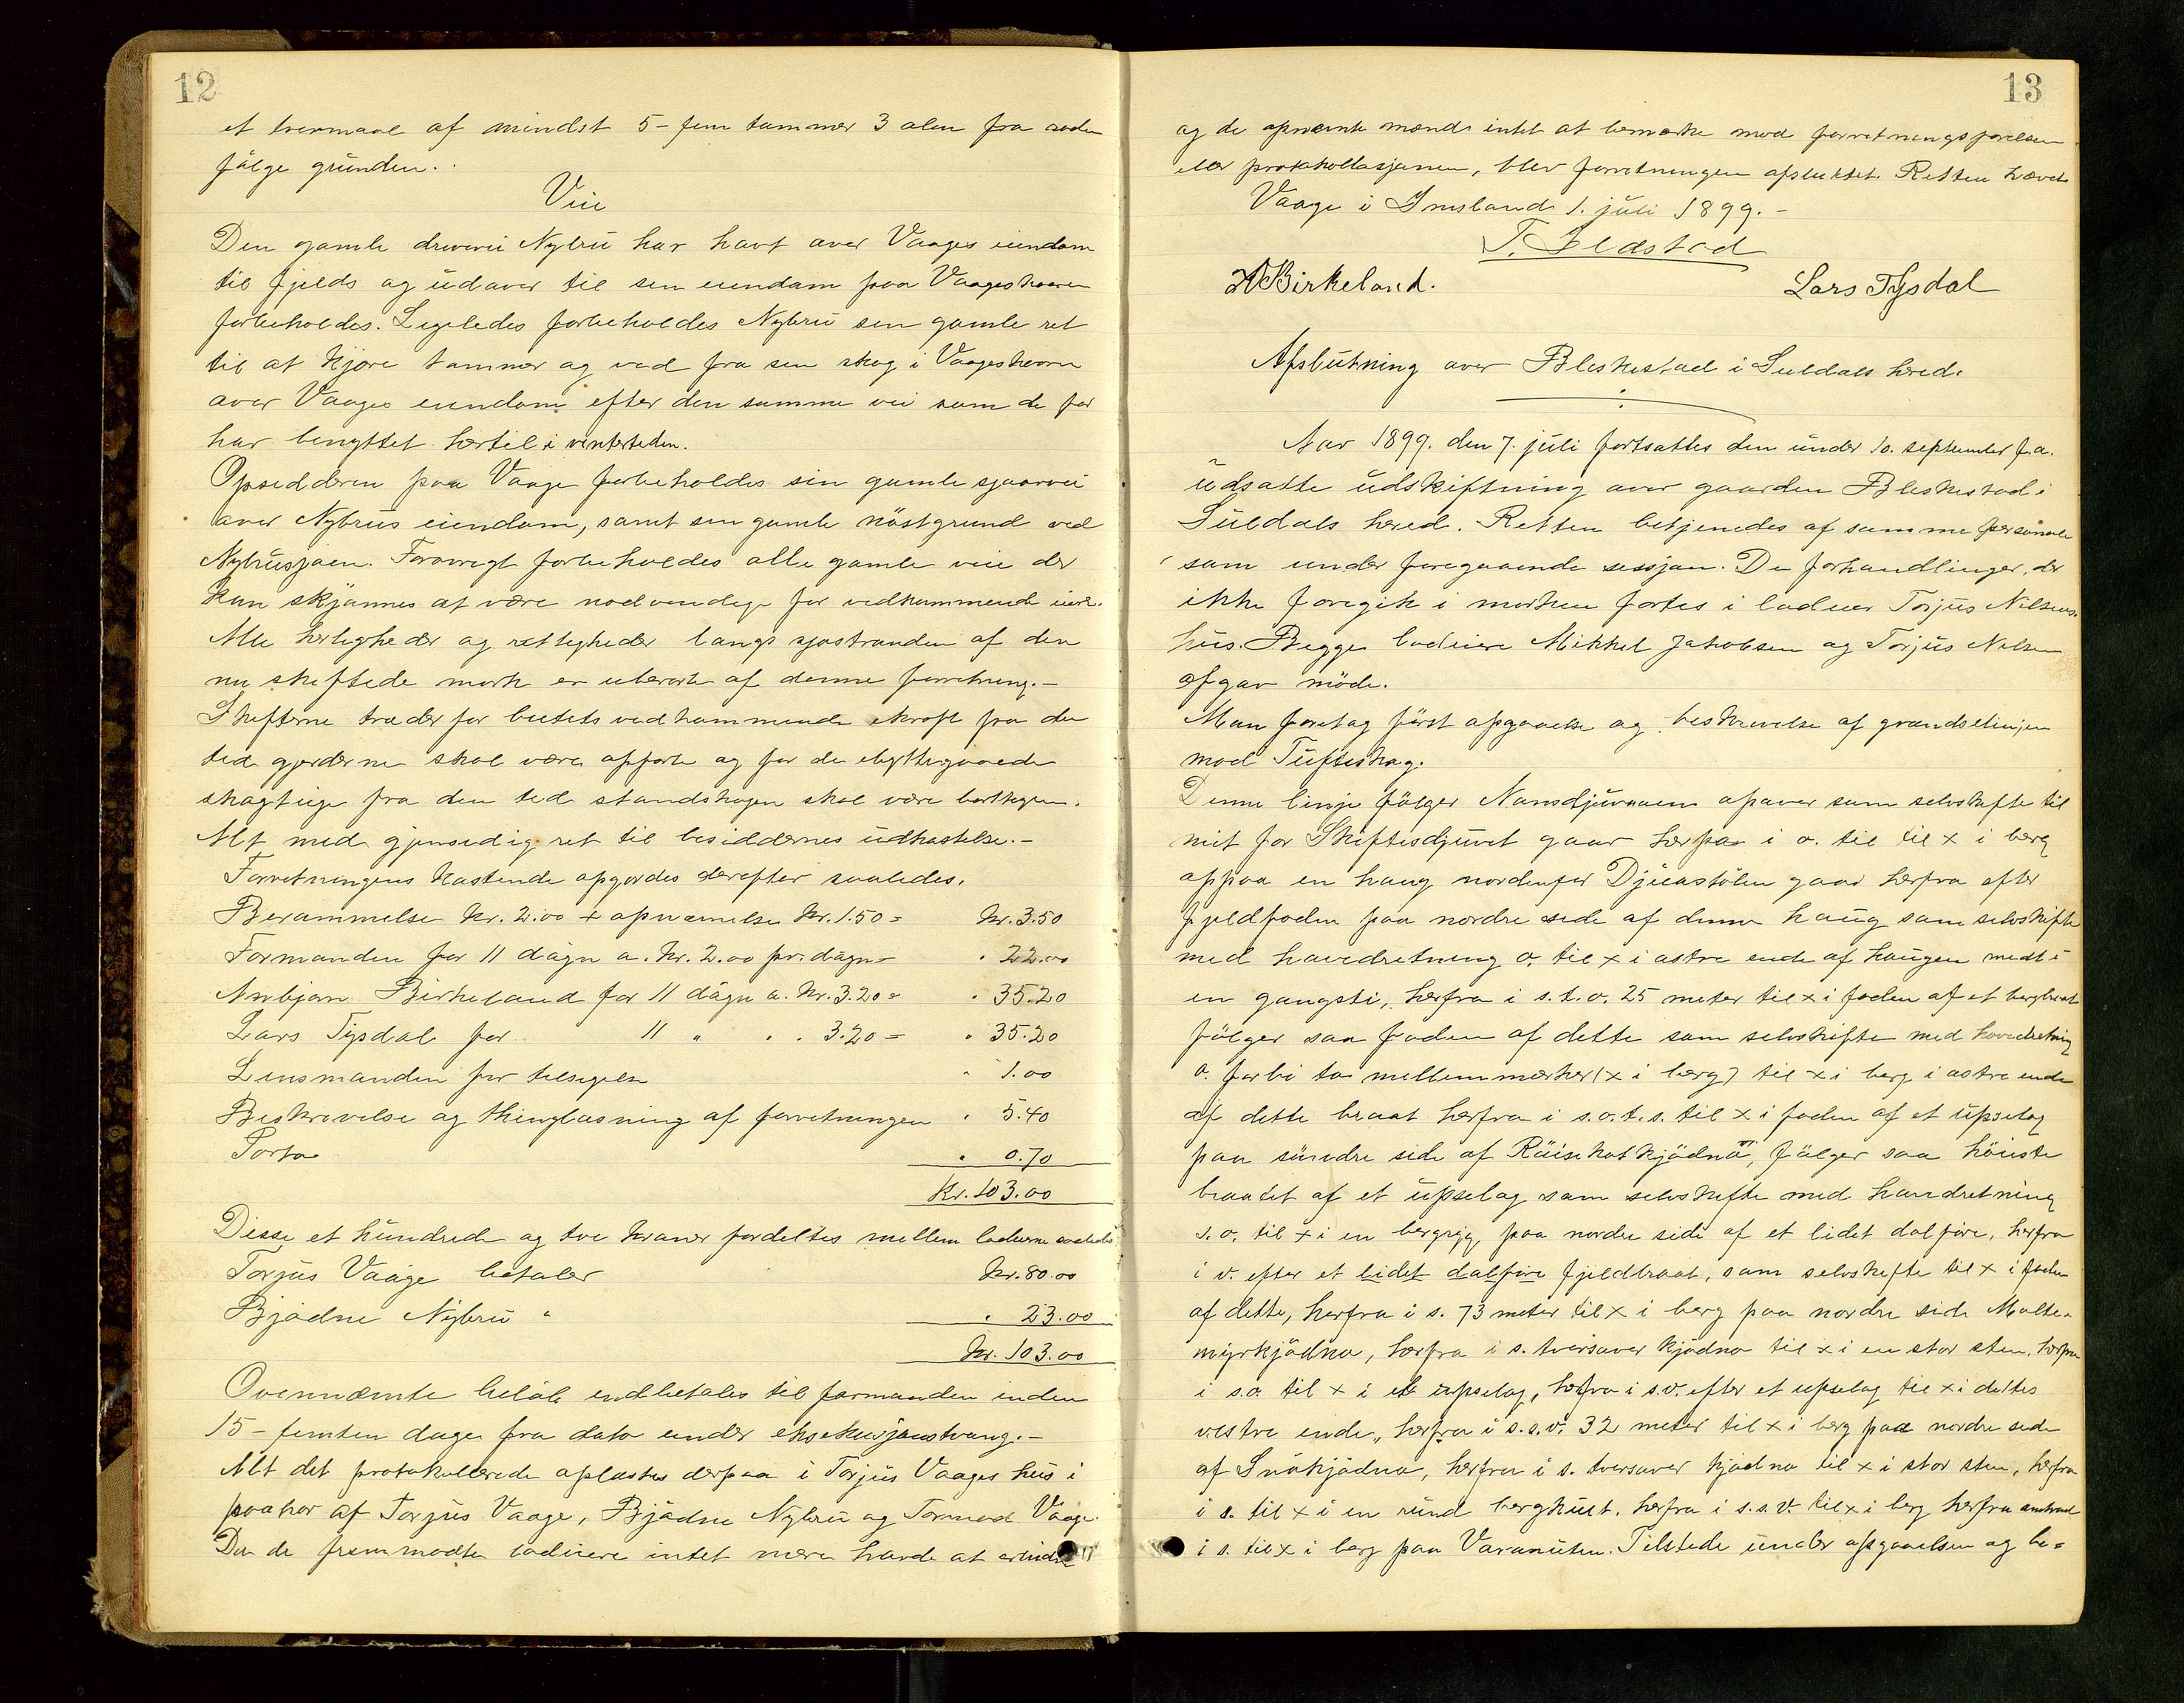 12
et tvermaal af mindst 5 - fem tommer 3 alen fra roden
følge grunden.
Veie
Den gamle drivvei Nybru har havt over Vaages eiendom
til fjelds og udover til sin eiendom paa Vaageskvæven
forbeholdes. Ligeledes forbeholdes Nybru sin gamle ret
til at kjøre tømmer og ved fra sin skog i Vaageskvæven
over Vaages eiendom efter den samme vei som de før
har benyttet hertil i vintertiden.
Opsidderen paa Vaage forbeholdes sin gamle sjøvei
over Nybrus eiendom, samt sin gamle nøstgrund ved
Nybrusjøen. Forøvrigt forbeholdes alle gamle veie der
kan skjønnes at være nødvendige for vedkommende eiere.
Alle herligheder og rettigheder langs sjøstranden af den
nu skiftede mark er uberørt af denne forretning. -
Skifterne træder for beitets vedkommende ikraft fra den
tid gjerderne skal være opført og for de ombyttede
skogteige fra den tid standskogen skal være borthugen.
Alt med gjensidig ret til besiddernes udkastelse. -
Forretningens kostende opgjordes derefter saaledes.
Berammelse Kr. 2.00 + opnævnelse Kr. 1.50 = Kr. 3.50
Formanden for 11 døgn a. Kr. 2.00 pr. døgn = " 22.00
Arnbjørn Birkeland for 11 døgn a. Kr. 3.20 = " 35.20
Lars Tysdal for 11 " " . 3.20 = " 35.20
Lensmanden for tilsigelse " 1.00
Beskrivelse og thinglæsning af forretningen " 5.40
Porto " 0.70
Kr. 103.00
Disse et hundrede og tre kroner fordeltes mellem lodeierne saaledes
Torjus Vaage betaler Kr. 80.00
Bjødne Nybru " " 23.00
Kr. 103.00
Ovennævnte beløb indbetales til formanden inden
15 - femten dage fra dato under eksekusjonstvang. -
Alt det protokollerede oplæstes derpaa i Torjus Vaages hus i
paahør af Torjus Vaage, Bjødne Nybru og Tormod Vaage.
Da de fremmødte lodeiere intet mere havde at erindre
13
og de opnævnte mænd intet at bemærke mod forretningsførelsen
eller protokollasjonen, blev forretningen afsluttet. Retten hævet
Vaage i Imsland 1. juli 1899. -
T. Ildstad
A Birkeland. Lars Tysdal
Afslutning over Bleskestad i Suldals hered.
Aar 1899. den 7. juli fortsattes den under 10. september f.a.
udsatte udskiftning over gaarden Bleskestad i
Suldals hered. Retten betjenedes af samme personale
som under foregaaende sessjon. De forhandlinger, der
ikke foregik i marken førtes i lodeier Torjus Nilsens
hus. Begge lodeiere Mikkel Jakobsen og Torjus Nilsen
afgav møde.
Man foretog først opgaaelse og beskrivelse af grændselinjen
mod Tufteskog.
Denne linje følger Nansdjuvaaen opover som selvskifte til
mit for Skiftesdjuvet gaar herfra i o. til til x i berg
oppaa en haug nordenfor Djuvastølen gaar herfra efter
fjeldfoden paa nordre side af denne haug som selvskifte
med hovedretning o. til x i østre ende af haugen midt i
en gangsti, herfra i s.t.o. 25 meter til x i foden af et bergbrat
følger saa foden af dette som selvskifte med hovedretning
o. forbi to mellemmærker (x i berg) til x i berg i østre ende
af dette braat herfra i s.o.t.s. til x i foden af et upselag
paa søndre side af Røiseholtkjødna, følger saa høieste
braatet af et upselag som selvskifte med hovedretning
s.o. til x i en bergryg paa nordre side af et lidet dalføre, herfra
i v. efter et lidet dalføre fjeldbraat, som selvskifte til x i foden
af dette, herfra i s. 73 meter til x i berg paa nordre side Molte-
myrkjødna, herfra i s. tversover kjødna til x i en stor sten, herfra
i s.o til x i et upselag, herfra i s.v. efter et upselag til x i dettes
vestre ende, herfra i s.s.v. 32 meter til x i berg paa nordre side
af Snøkjødna, herfra i s. tversover kjødna til x i stor sten, herfra
i s. til x i en rund bergkult. herfra i s.s.v. til x i berg herfra omtrent
i s. til x i berg paa Varanuten. Tilstede under opgaaelsen og be=